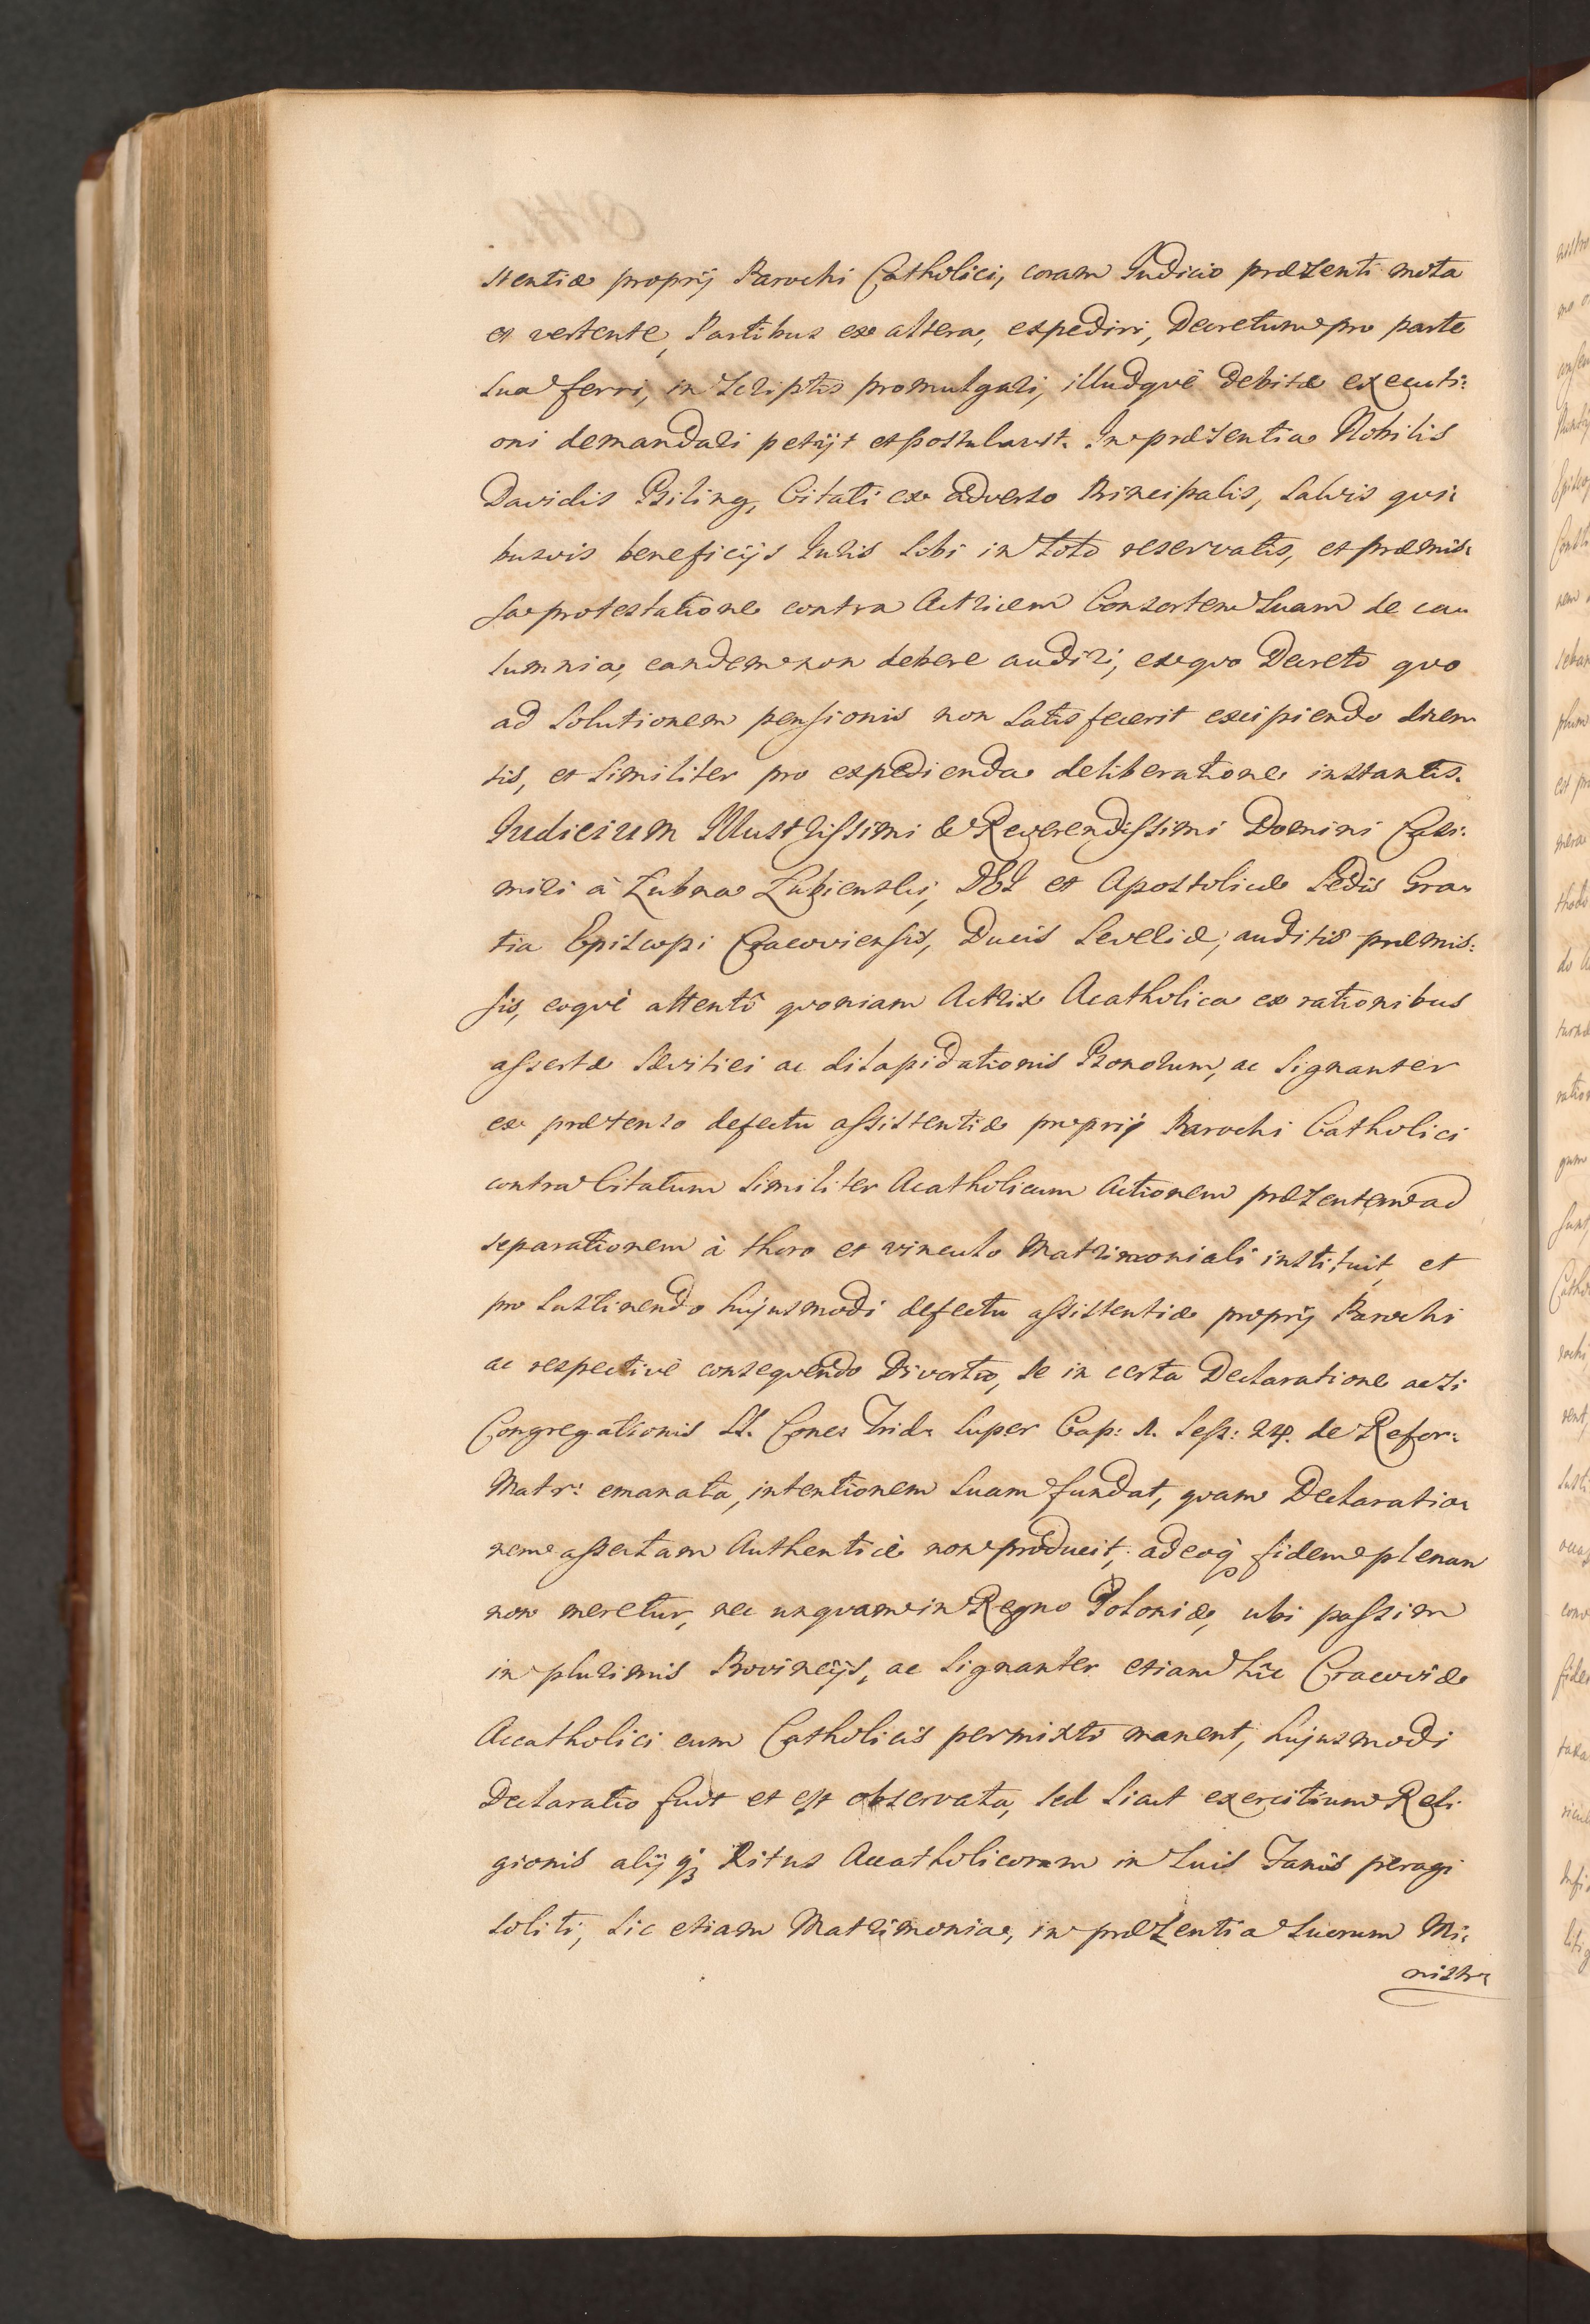 stentiæ proprij Parochi Catholici, coram Judicio præsenti mota
et vertente, Partibus ex altera, expediri, Decretum pro parte
sua ferri, in scriptis promulgari, illudquè debitæ executi:
oni demandari petijt et postulavit. In præsentia Nobilis
Davidis Biling, Citati ex adverso Principalis, salvis qui:
busvis beneficijs Juris sibi in toto reservatis, et præmis:
sa protestatione contra Actricem Consortem suam de ca:
lumnia, eandem non debere audiri, ex quo Decreto quo
ad solutionem pensionis non satisfecerit excipiendo dicen:
tis, et similiter pro expedienda deliberatione instantis.
Judicium Illustrissimi & Reverendissimi Domini Casi:
miri à Łubna Łubienski, DEI et Apostolicæ Sedis Gra:
tia Episcopi Cracoviensis, Ducis Severiæ, auditis præmis:
sis, eoquè attentô quoniam Actrix Acatholica ex rationibus
assertæ sævitiei ac dilapidationis Bonorum, ac signanter
ex prætenso defectu assistentiæ proprij Parochi Catholici
contra Citatum similiter Acatholicum Actionem præsentem ad
separationem à thoro et vinculo Matrimoniali instituit, et
pro sustinendo hujusmodi defectu assistentiæ proprij Parochi
ac respectivè consequendo Divortio, se in certa Declaratione acti
Congregationis SS. Conc: Trid: super Cap: 1. Sess: 24. de Refor:
Matr: emanata, intentionem suam fundat, quam Declaratio:
nem assertam Authenticè non producit, adeoq; fidem plenam
non meretur, nec unquam in Regno Poloniæ, ubi passim
in plurimis Provincijs, ac signanter etiam hîc Cracoviæ
Accatholici cum Catholicis permixti manent, hujusmodi
Declaratio fuit et est observata, sed sicut exercitium Reli:
gionis alijq; Ritus Accatholicorum in suis Fanis peragi
soliti, sic etiam Matrimonia, in præsentia suorum Mi:
nistr: